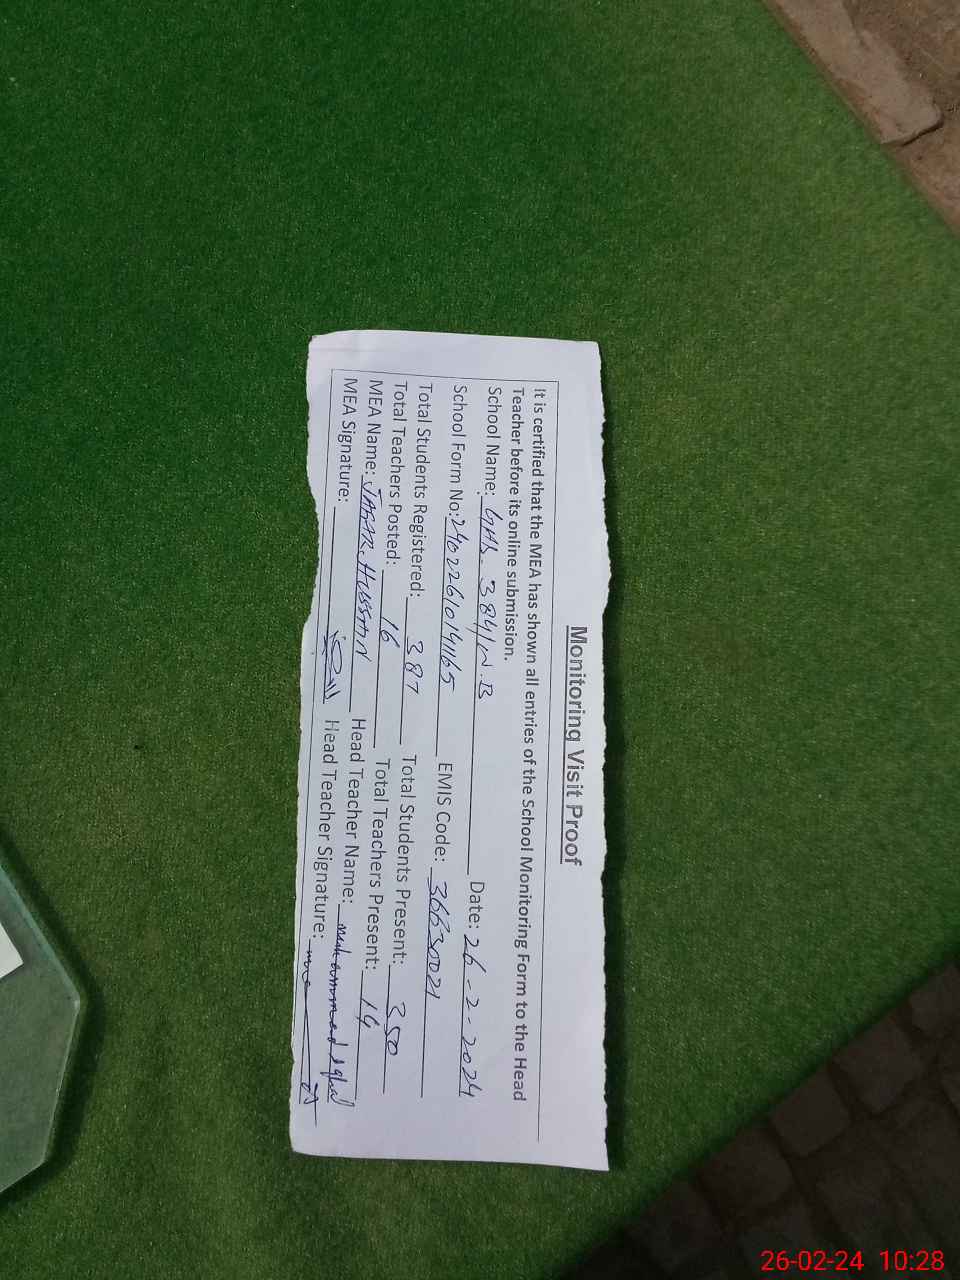 Monitoring Visit Proof
It is certified that the MEA has shown all entries of the School Monitoring Form to the Head
Teacher before its online submission.
School Name: GHS. 384/W.B Date: 26-2-2024
School Form No: 24022610141165 EMIS Code: 36630021
Total Students Registered: 387 Total Students Present: 350
Total Teachers Posted: 16 Total Teachers Present: 14
MEA Name: JAFAR. HUSSAIN Head Teacher Name: Muhammad Iqbal
MEA Signature: Head Teacher Signature:
26-02-24 10:28